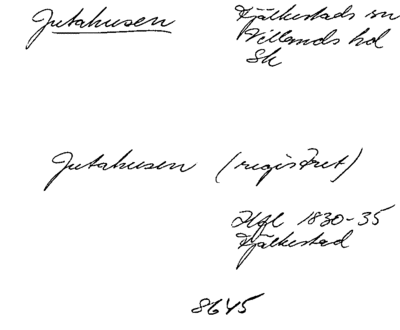 Jutahusen Fjälkestads sn
Villands hd
Sk
Jutahusen (registret)
Hfl 1830-35
Fjälkestad
8645